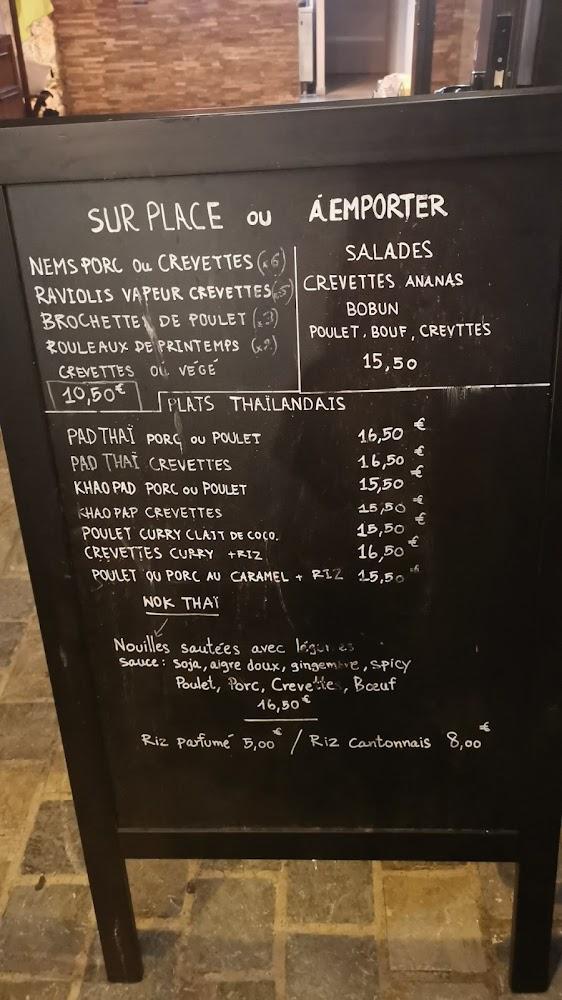 SUR PLACE OU À EMPORTER
NEMS PORC OU CREVETTES (x6)
RAVIOLIS VAPEUR CREVETTES (x5)
BROCHETTES DE POULET (x3)
ROULEAUX DE PRINTEMPS (x2)
CREVETTES OU VÉGÉ
10,50€
SALADES
CREVETTES ANANAS
BOBUN
POULET, BOUF, CREVTTES
15,50
PLATS THAÏLANDAIS
PAD THAÏ PORC OU POULET 16,50 €
PAD THAÏ CREVETTES 16,50 €
KHAO PAD PORC OU POULET 15,50 €
KHAO PAP CREVETTES 15,50 €
POULET CURRY CLAIT DE COCO. 15,50 €
CREVETTES CURRY + RIZ 16,50 €
POULET OU PORC AU CARAMEL + RIZ 15,50 €
WOK THAÏ
Nouilles sautées avec légumes
sauce : soja, aigre doux, gingembre, spicy
Poulet, Porc, Crevettes, Bœuf
16,50€
Riz parfumé 5,00€ / Riz Cantonnais 8,00€